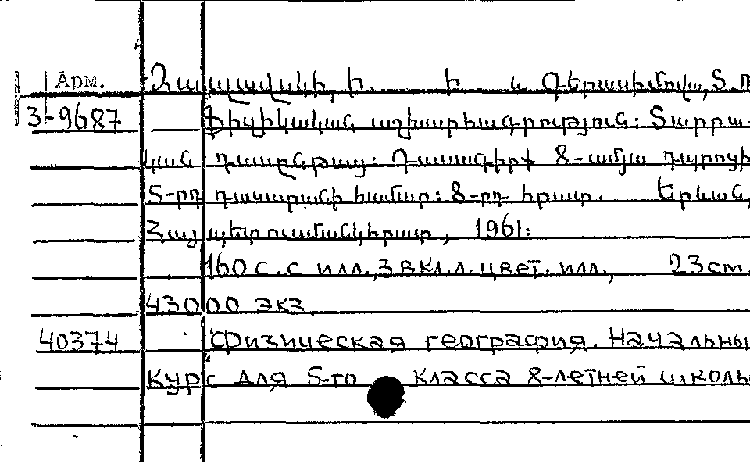 Арм.
3-9687
և Գերասիմով, Տ.Պ
Ֆիզիկական աշխարհագրություն: Տարրա-
կան դասընթաց: Դասագիրք 8-ամյա դպրոցի
5-րդ դասարանի համար: 8-րդ հրատ. Երևան,
Հայպետուսմանկհրատ, 1961:
160 с. с илл., 3 вкл.л. цвет. илл., 23см.
43000 экз.
40374 Физическая география. Начальны
курс для 5-го класса 8-летней школы